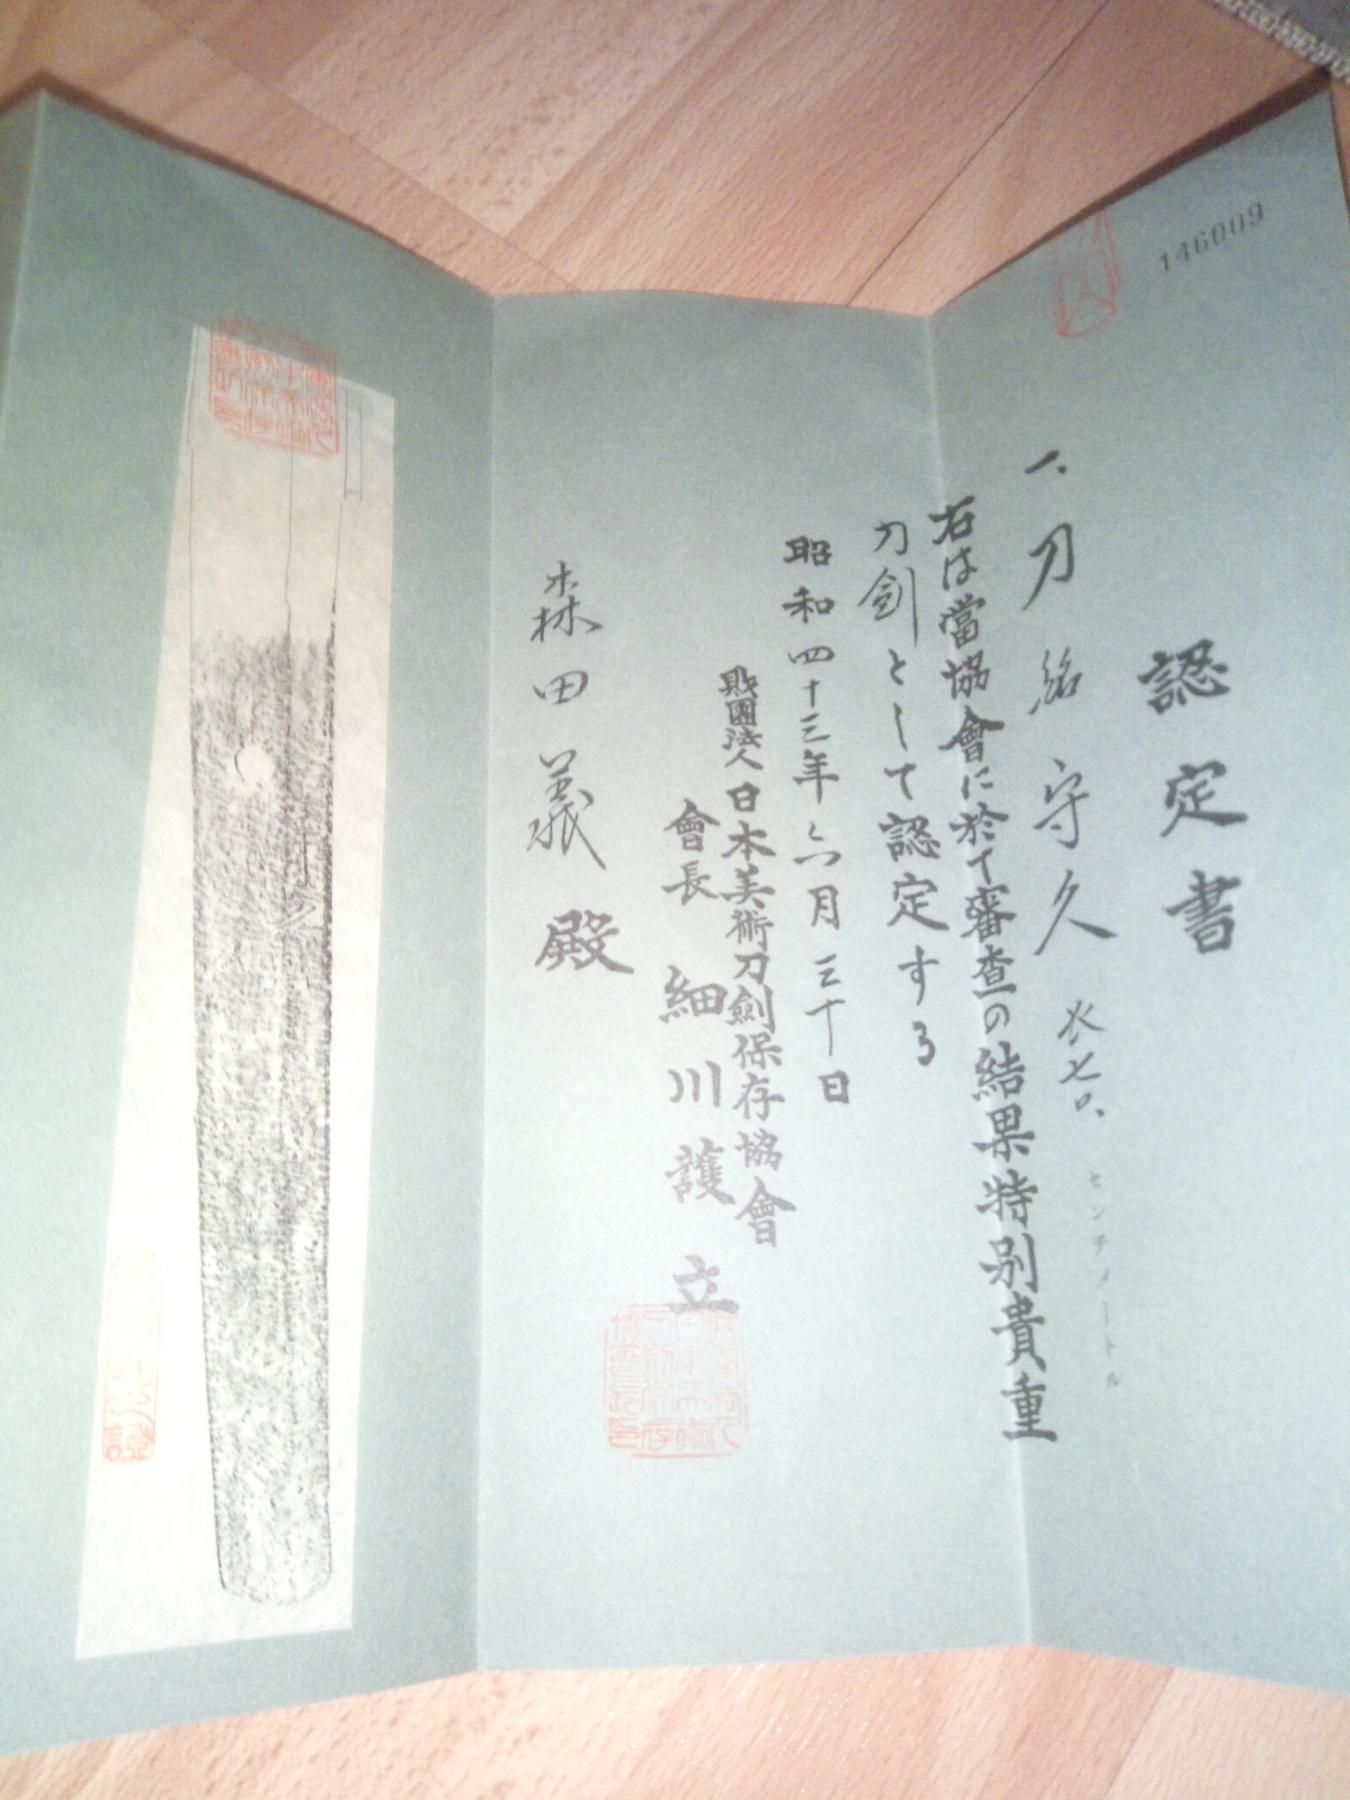 146009
認定書
一、刀 銘 守久 長七〇、センチメートル
右は當協會に於て審査の結果特別貴重
刀劍として認定する
昭和四十三年六月三十日
財團法人日本美術刀劍保存協會
會長 細川護立
森田義殿